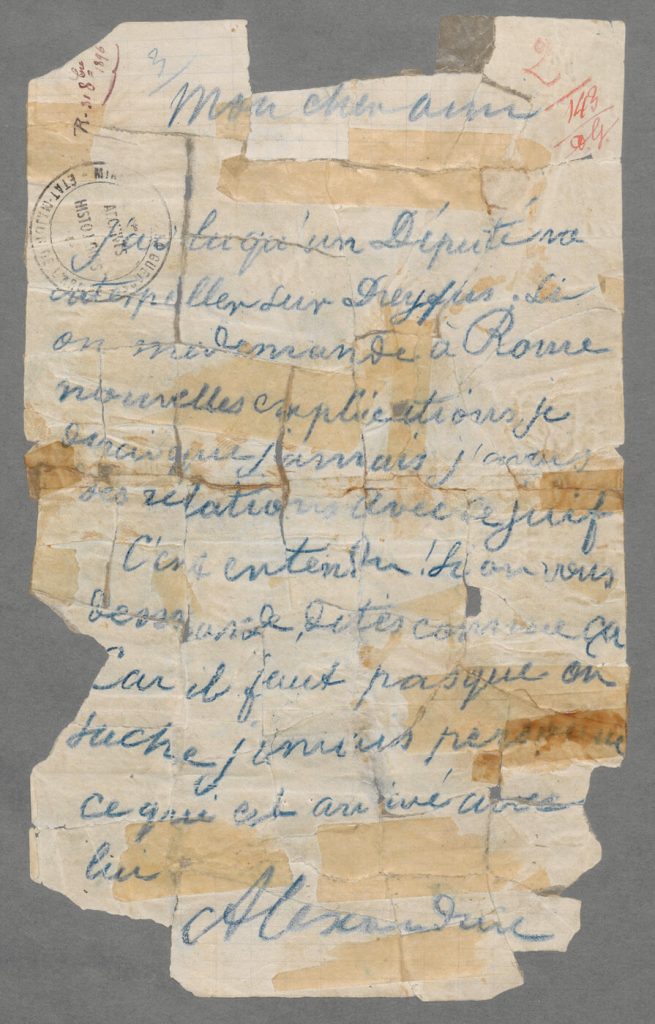 3
2
143
R. 318 bis
1896
Mon cher ami
ARCHIVES
HISTORIQUES
ÉTAT-MAJOR
J'ai lu qu'un Député va
interpeller sur Dreyfus. Si
on me demande à Rome
nouvelles explications je
dirai que jamais j'avais
des relations avec ce juif
C'est entendu! Si on vous
demande, dites comme ça
Car il faut pas que on
sache jamais personne
ce qui est arrivé avec
lui
Alexandrine